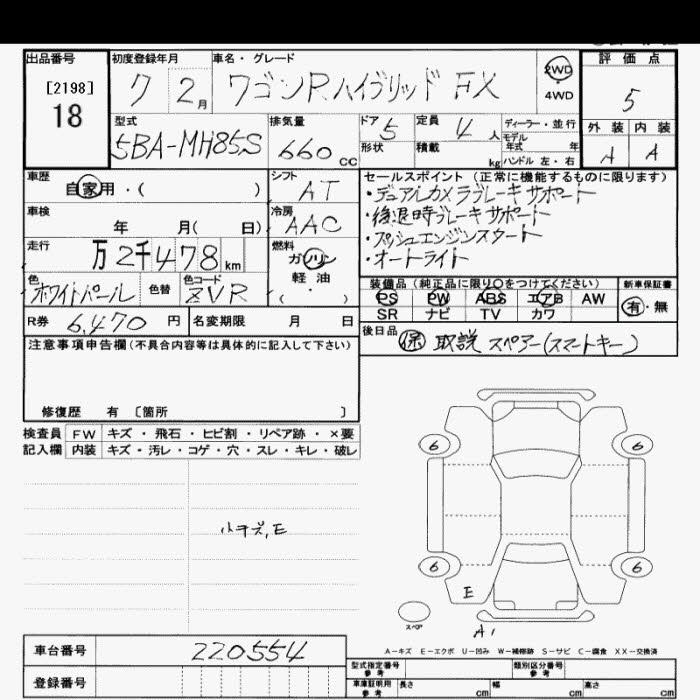 出品番号
[2198]
18
初度登録年月
7 2月
車名・グレード
ワゴンR ハイブリッド FX
2WD
・
4WD
評価点
5
外装 内装
A A
型式
5BA-MH85S
排気量
660 cc
ドア 5
形状
定員 4 人
積載 kg
ディーラー・並行
モデル
年式 年
ハンドル 左・右
車歴
自家用・( )
シフト
AT
車検
年 月( 日)
冷房
AAC
走行
万2千478km
燃料
ガソリン
軽・油
・( )
色
ホワイトパール
色替
色コード
ZVR
セールスポイント(正常に機能するものに限ります)
・デュアルカメラブレーキサポート
・後退時ブレーキサポート
・プッシュエンジンスタート
・オートライト
装備品(純正品に限り○をつけてください)
PS PW ABS エアB AW
SR ナビ TV カワ
新車保証書
有・無
R券 6,470 円
名変期限 月 日
後日品
保 取説 スペアー(スマートキー)
注意事項申告欄(不具合内容等は具体的に記入して下さい)
修復歴 有 〔箇所 〕
検査員 FW キズ・飛石・ヒビ割・リペア跡・×要
記入欄 内装 キズ・汚レ・コゲ・穴・スレ・キレ・破レ
小キズ,E
6 6
6 6
E
スペア
A1
A-キズ E-エクボ U-凹み W-補修跡 S-サビ C-腐食 XX-交換済
車台番号 220554
登録番号
型式指定番号
参考
類別区分番号
参考
車庫証明用
参考
長さ cm 幅 cm 高さ cm